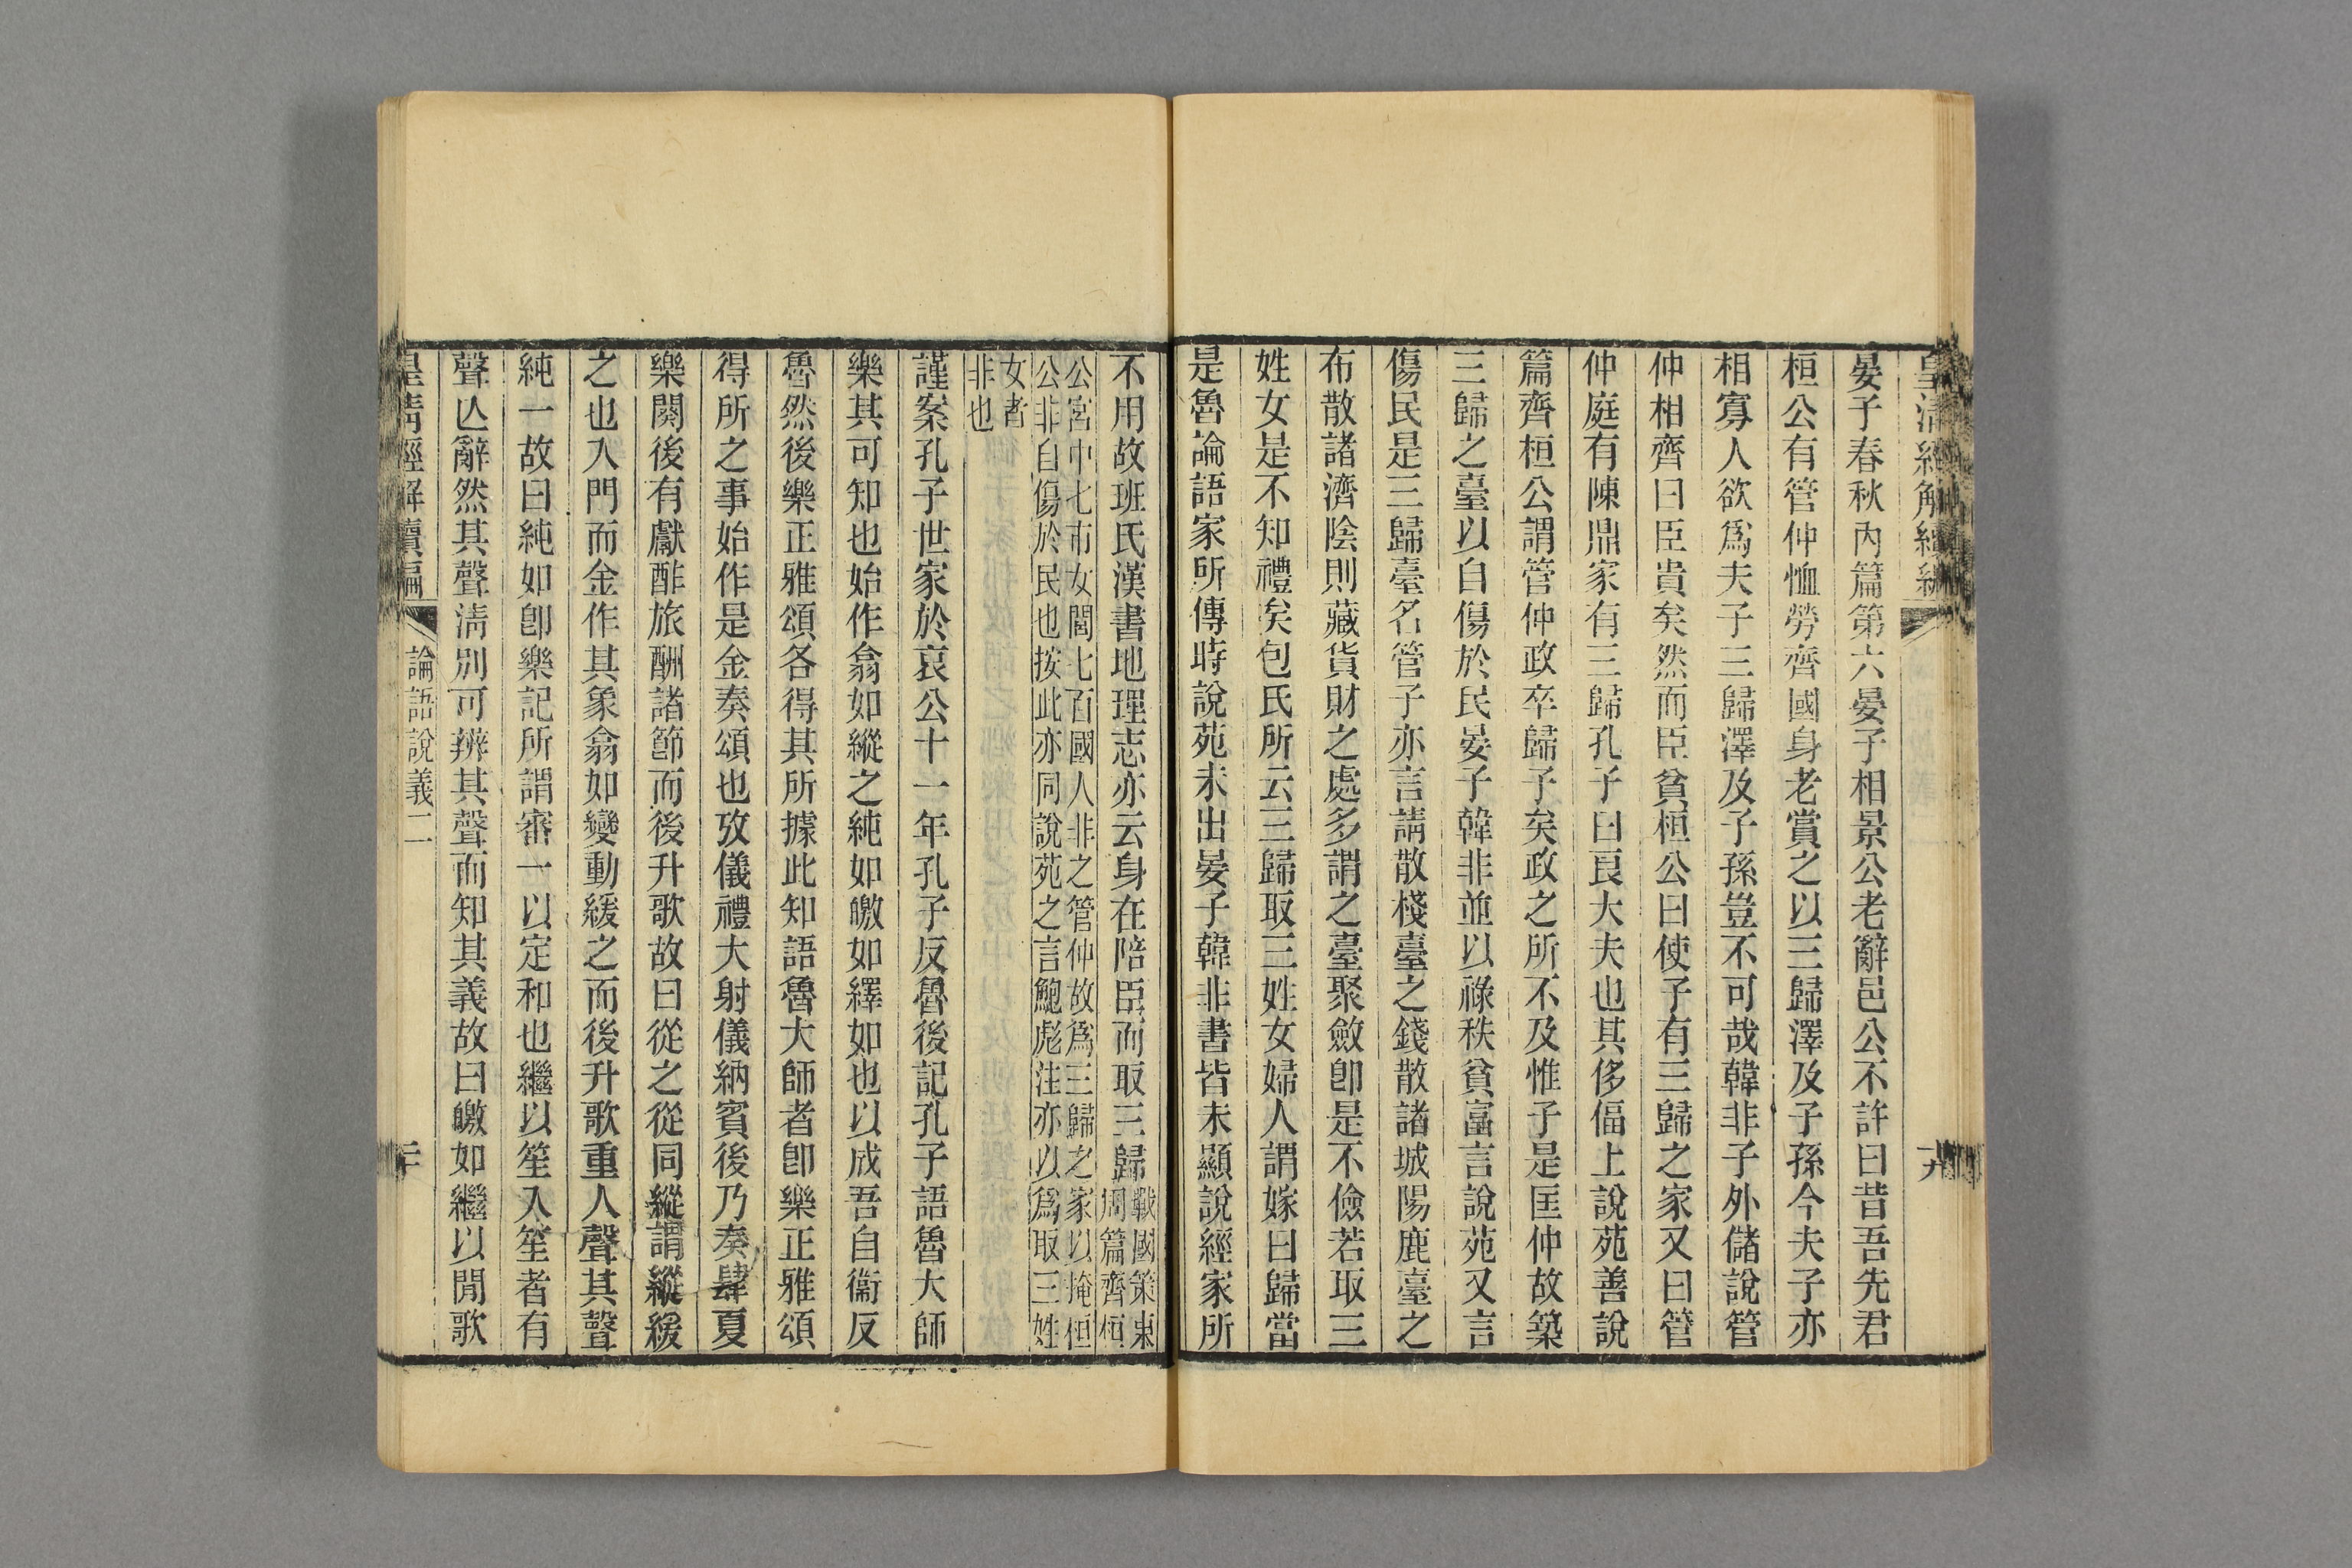 皇清經解續編
十九
晏子春秋內篇第六晏子相景公老辭邑公不許曰昔吾先君
桓公有管仲恤勞齊國身老賞之以三歸澤及子孫今夫子亦
相寡人欲爲夫子三歸澤及子孫豈不可哉韓非子外儲說管
仲相齊曰臣貴矣然而臣貧桓公曰使子有三歸之家又曰管
仲庭有陳鼎家有三歸孔子曰良大夫也其侈偪上說苑善說
篇齊桓公謂管仲政卒歸子矣政之所不及惟子是匡仲故築
三歸之臺以自傷於民晏子韓非並以祿秩貧富言說苑又言
傷民是三歸臺名管子亦言請散棧臺之錢散諸城陽鹿臺之
布散諸濟陰則藏貨財之處多謂之臺聚斂卽是不儉若取三
姓女是不知禮矣包氏所云三歸取三姓女婦人謂嫁曰歸當
是魯論語家所傳時說苑未出晏子韓非書皆未顯說經家所
不用故班氏漢書地理志亦云身在陪臣而取三歸戰國策東
周篇齊桓
公宮中七市女閭七百國人非之管仲故爲三歸之家以掩桓
公非自傷於民也按此亦同說苑之言鮑彪注亦以爲取三姓
女者
非也
謹案孔子世家於哀公十一年孔子反魯後記孔子語魯大師
樂其可知也始作翕如縱之純如皦如繹如也以成吾自衞反
魯然後樂正雅頌各得其所據此知語魯大師者卽樂正雅頌
得所之事始作是金奏頌也攷儀禮大射儀納賓後乃奏肆夏
樂闋後有獻酢旅酬諸節而後升歌故曰從之從同縱謂縱緩
之也入門而金作其象翕如變動緩之而後升歌重人聲其聲
純一故曰純如卽樂記所謂審一以定和也繼以笙入笙者有
聲亾辭然其聲淸別可辨其聲而知其義故曰皦如繼以閒歌
皇清經解續編
論語說義二
二十